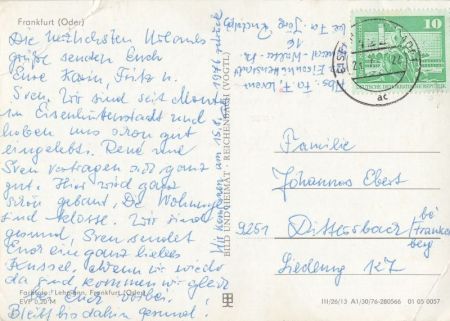 Frankfurt (Oder)
Die herzlichsten Urlaubs-
grüße senden Euch
Eure Karin, Fritz u.
Sven. Wir sind seit Montag
in Eisenhüttenstadt und
haben uns schon gut
eingelebt. René und
Sven vertragen sich ganz
gut. Hier wird ganz
schön gebaut, Die Wohnungen
sind klasse. Wir sind
gesund, Sven sendet
Euch ein ganz liebes
Küssel. Wenn wir wieder
da sind kommen wir gleich
bei Euch vorbei.
Bleibt bis dahin gesund
Farbfoto: Lehmann, Frankfurt (Oder)
EVP 0,20 M
Wir kommen am 15.8. 1976 zurück
BILD UND HEIMAT · REICHENBACH (VOGTL)
Abs. F.
Eisenhüttenstadt
16
bei Fa. Jörg
10
DEUTSCHE DEMOKRATISCHE REPUBLIK
ac
Familie
Johannes Ebert
9251 Dittersbach bei
Frankenberg
Siedlung 17
III/26/13 A1/30/76-280566 01 05 0057